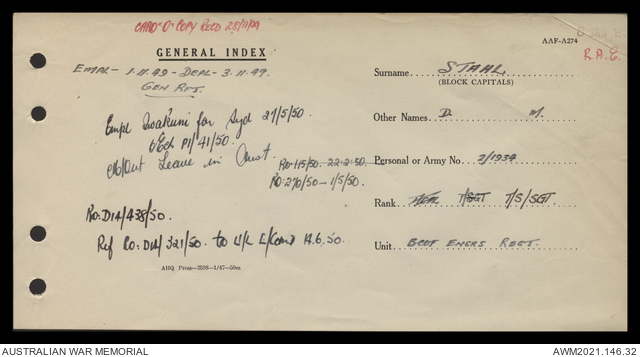 CARD "O" COPY RECD 25/11/49
GENERAL INDEX
AAF-A274
R.A.E.
EMPL - 1.11.49 - DEPL - 3.11.49.
GEN RFT.
Surname STAHL
(BLOCK CAPITALS)
Empl Iwakuni for Syd 27/5/50.
6 Ech P1/41/50
Other Names D. M.
Leave in Aust.
RO:115/50 - 22.2.50.
Personal or Army No. 2/1934
RO:270/50 - 1/5/50.
Rank T/SGT T/S/SGT.
RO:D14/438/50.
Ref Ro:D14/321/50. to 14.6.50.
Unit BCOF ENGRS REGT.
AHQ Press—3598—1/47—50m
AUSTRALIAN WAR MEMORIAL
AWM2021.146.32